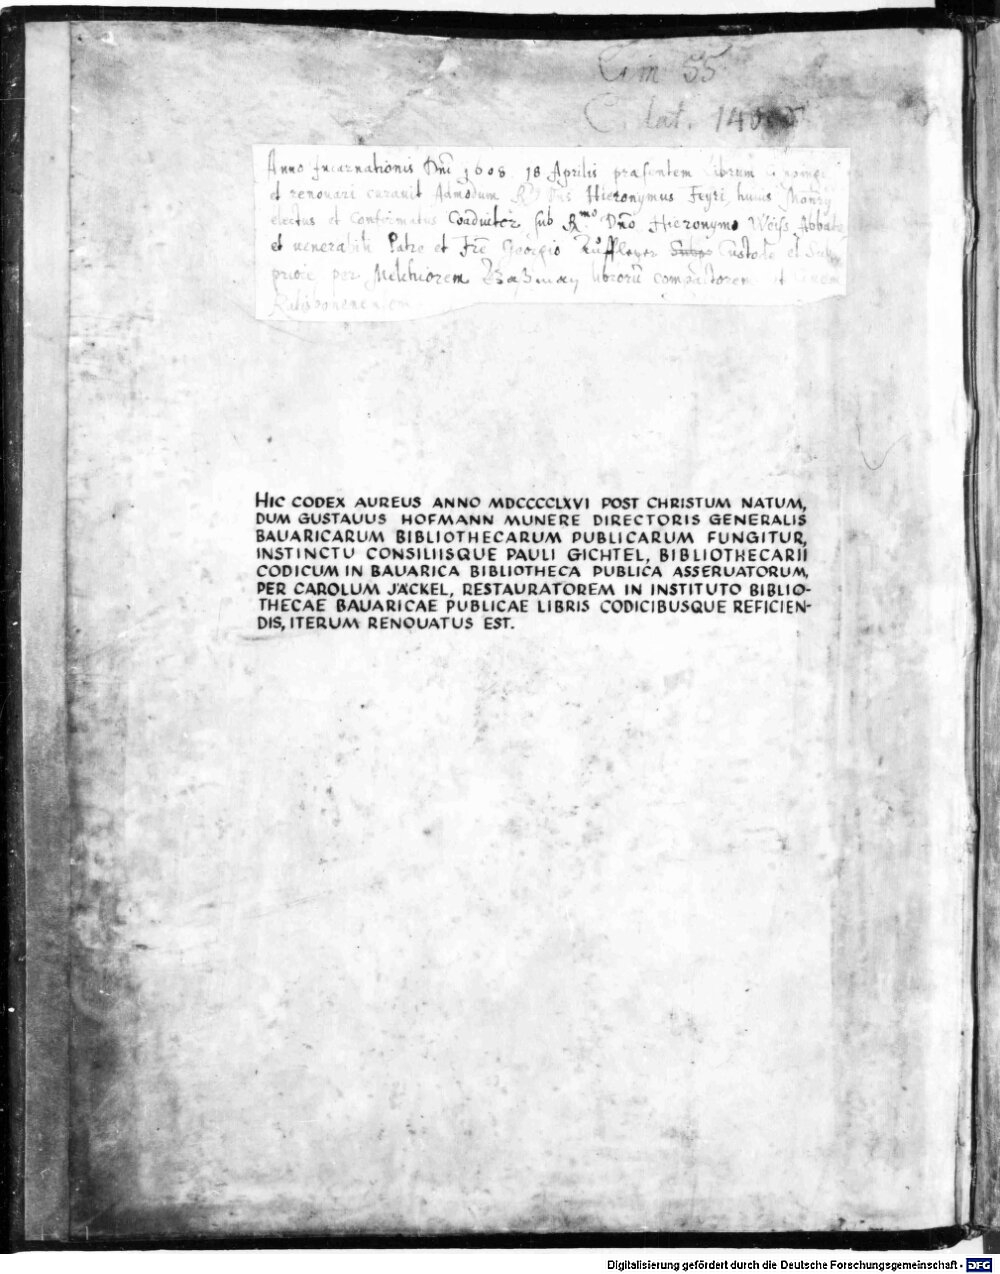 Cim 55
C. lat. 14000
Anno Incarnationis Dni 1608. 18 Aprilis praesentem librum
et renouari curauit Admodum Rds Dns Hieronymus Feyri huius Monrij
electus et Confirmatus Coadiutor sub Rmo Dno Hieronymo Weiss Abbate
et venerabili Patre et Fre Georgio Custode et Sub
priore per Melchiorem librorū compactorem et Ciuem
Ratisbonensem
HIC CODEX AUREUS ANNO MDCCCCLXVI POST CHRISTUM NATUM,
DUM GUSTAUUS HOFMANN MUNERE DIRECTORIS GENERALIS
BAUARICARUM BIBLIOTHECARUM PUBLICARUM FUNGITUR,
INSTINCTU CONSILIISQUE PAULI GICHTEL, BIBLIOTHECARII
CODICUM IN BAUARICA BIBLIOTHECA PUBLICA ASSERUATORUM,
PER CAROLUM JÄCKEL, RESTAURATOREM IN INSTITUTO BIBLIO-
THECAE BAUARICAE PUBLICAE LIBRIS CODICIBUSQUE REFICIEN-
DIS, ITERUM RENOUATUS EST.
Digitalisierung gefördert durch die Deutsche Forschungsgemeinschaft - DFG